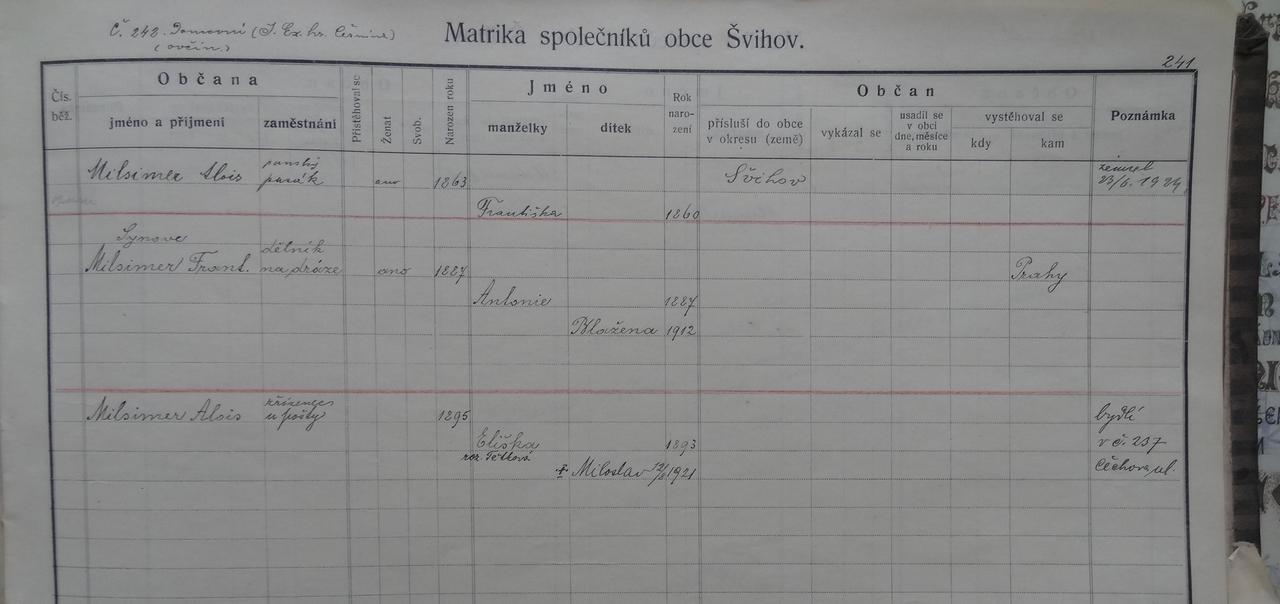 Č. 242. Domovní (J. Ex. hr. Černína)
(ovčín.)
Matrika společníků obce Švihov.
241
Čís. běž.
Občana
jméno a příjmení
zaměstnání
Přistěhoval se
Ženat
Svob.
Narozen roku
Jméno
manželky
dítek
Rok naro- zení
Občan
přísluší do obce v okresu (země)
vykázal se
usadil se v obci dne, měsíce a roku
vystěhoval se
kdy
kam
Poznámka
Milsimer Alois panský pasák ano 1863 Švihov zemřel 23/6. 1924
Františka 1860
Synové
Milsimer Frant. dělník na dráze ano 1887 Prahy
Antonie 1887
Blažena 1912
Milsimer Alois zřízenec u pošty 1895 bydlí
Eliška 1893 v č. 237
roz. Tetková
Miloslav 1921 Čechova ul.